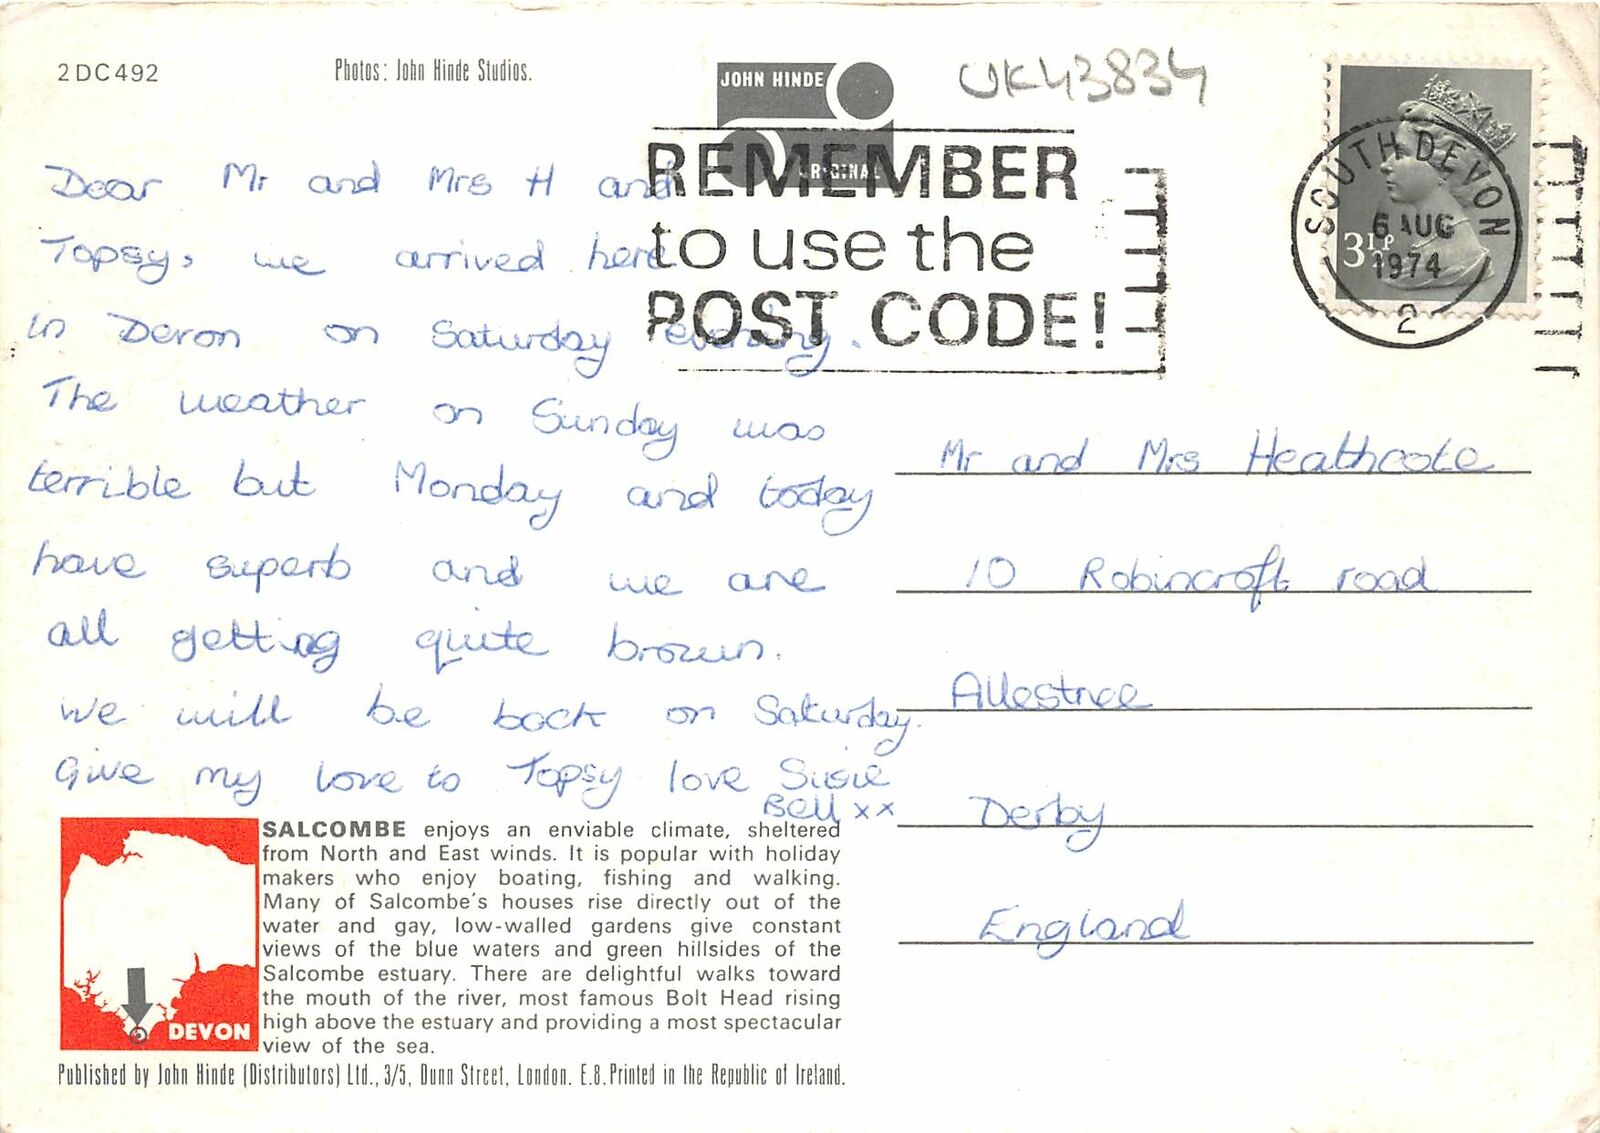 2DC492
Photos: John Hinde Studios.
JOHN HINDE
ORIGINAL
UK43834
REMEMBER
to use the
POST CODE!
SOUTH DEVON
6 AUG
1974
2
3½P
Dear Mr and Mrs H and
Topsy, we arrived here
in Devon on Saturday evening.
The weather on Sunday was
terrible but Monday and today
have superb and we are
all getting quite brown.
We will be back on Saturday.
Give my love to Topsy love Susie
Bell xx
Mr and Mrs Heathcote
10 Robincroft road
Allestree
Derby
England
SALCOMBE enjoys an enviable climate, sheltered
from North and East winds. It is popular with holiday
makers who enjoy boating, fishing and walking.
Many of Salcombe's houses rise directly out of the
water and gay, low-walled gardens give constant
views of the blue waters and green hillsides of the
Salcombe estuary. There are delightful walks toward
the mouth of the river, most famous Bolt Head rising
high above the estuary and providing a most spectacular
view of the sea.
DEVON
Published by John Hinde (Distributors) Ltd., 3/5, Dunn Street, London. E.8. Printed in the Republic of Ireland.